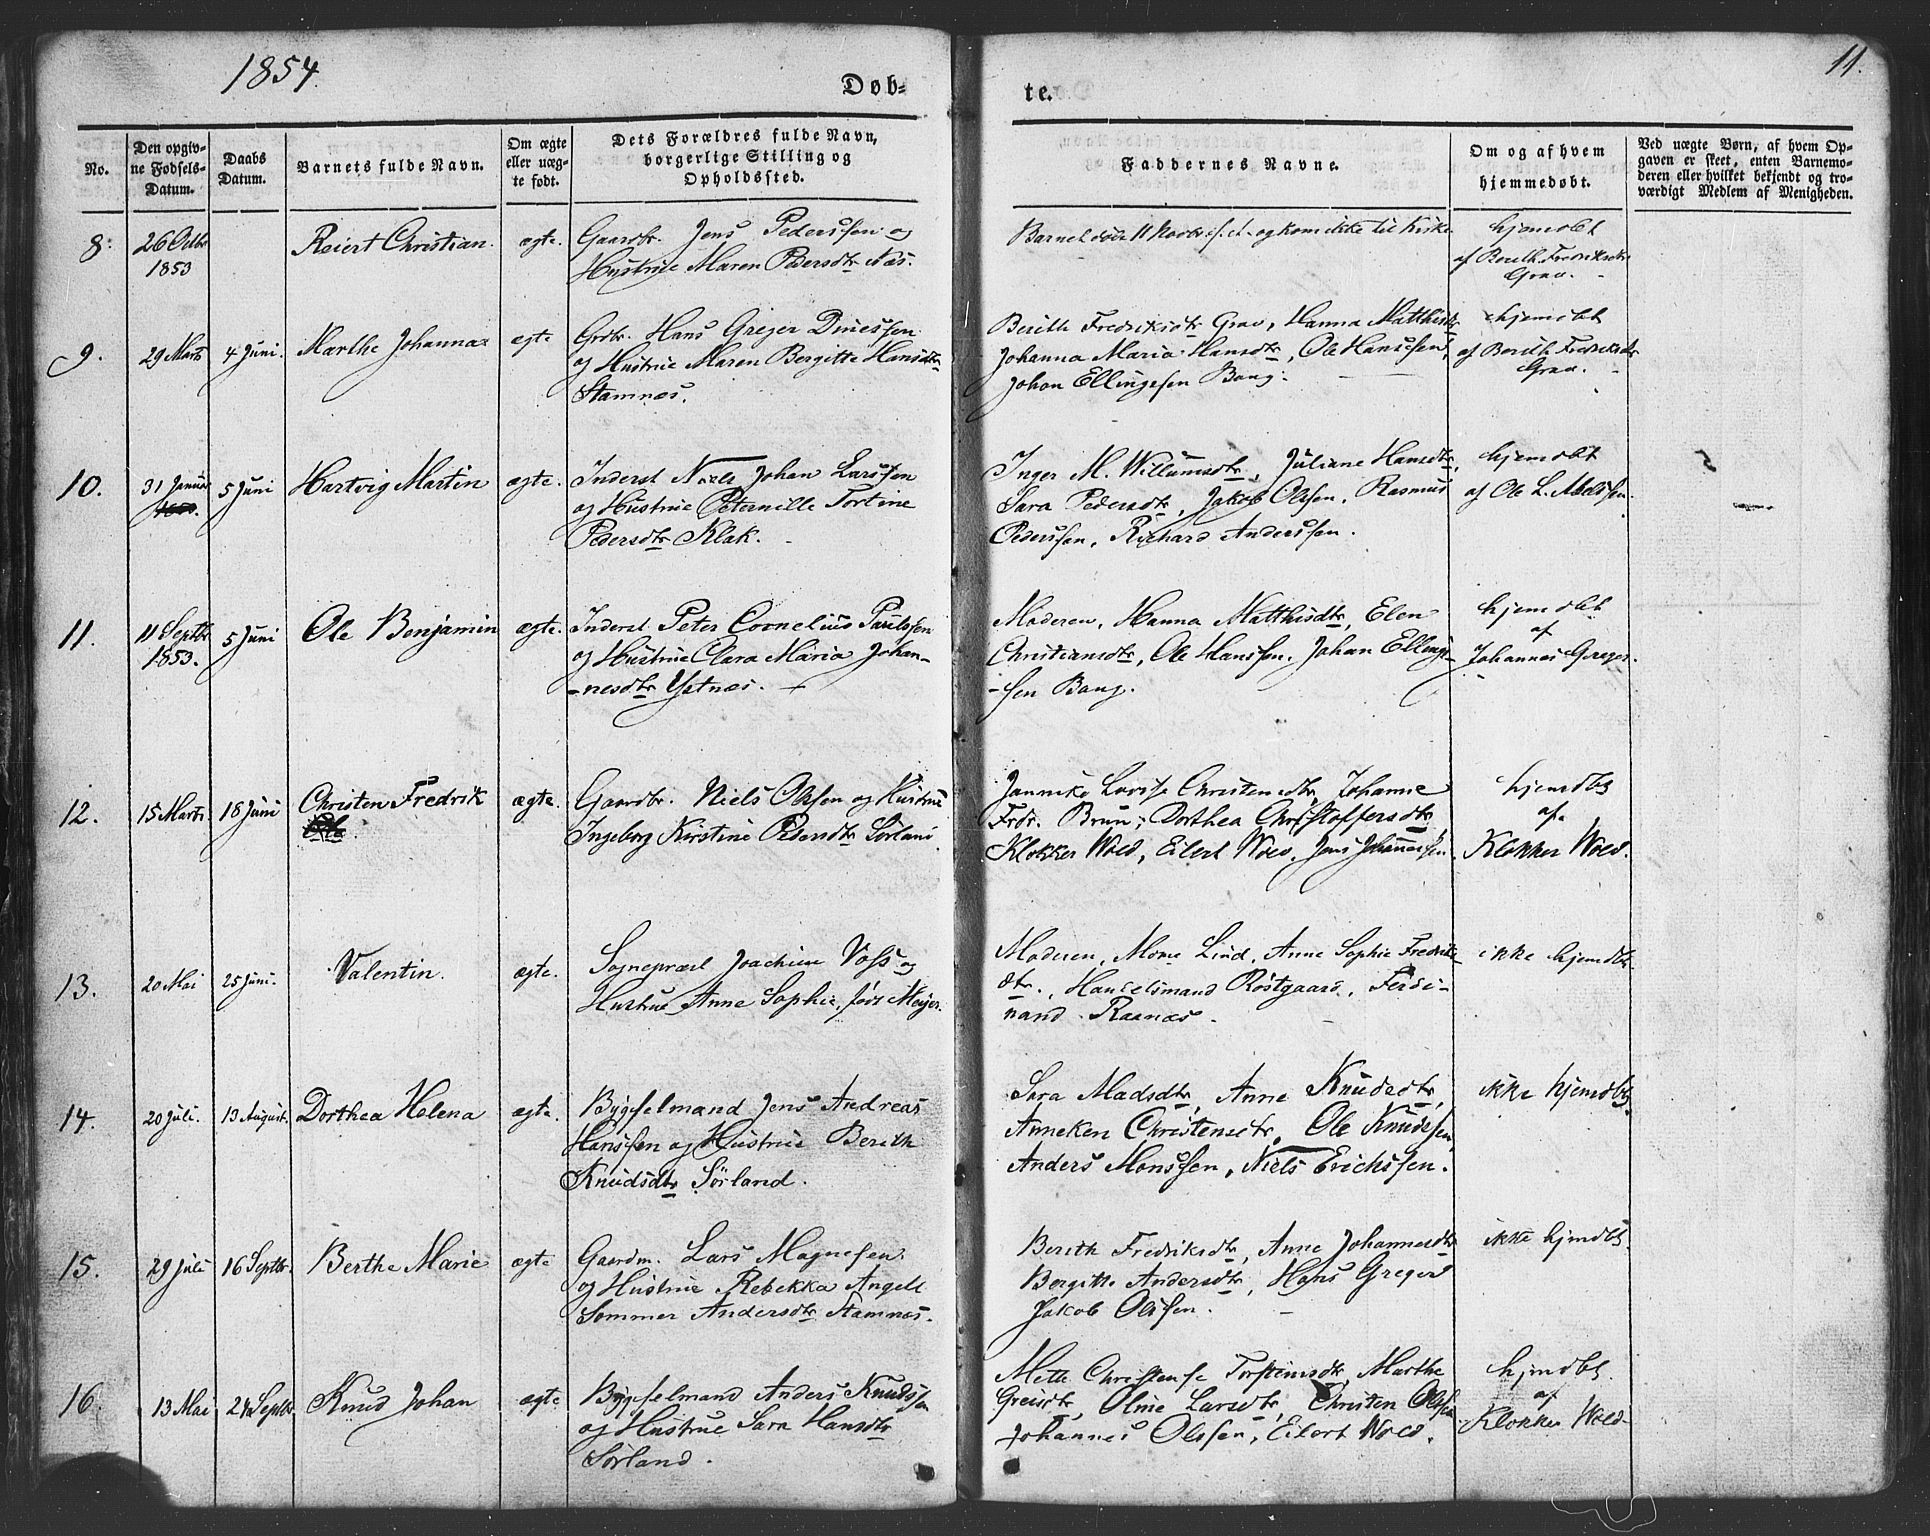 1854.
Døb-
te.
11.
No.
Den opgiv-
ne Fødsels-
Datum.
Daabs
Datum.
Barnets fulde Navn.
Om ægte
eller uæg-
te født.
Dets Forældres fulde Navn,
borgerlige Stilling og
Opholdssted.
Faddernes Navne.
Om og af hvem
hjemmedøbt.
Ved uægte Børn, af hvem Op-
gaven er skeet, enten Barnemo-
deren eller hvilket bekjendt og tro-
værdigt Medlem af Menigheden.
8.
26 Octbr
1853
Reiert Christian.
ægte.
Gaardbr. Jens Pederssen og
Hustrue Maren Pedersdtr Næs.
Barnet døde 11 Novbr s. A. og kom ikke til Kirke.
hjemdbt
af Berith Fredriksdtr
Grav.
9.
29 Marts
4 Juni.
Marthe Johanna
ægte
Grdbr. Hans Greger Dinessen
og Hustrue Maren Bergitte Hansdtr
Stamnes.
Berith Fredriksdtr Grav, Hanna Matthisdtr
Johanna Maria Hansdtr, Ole Hanssen,
Johan Ellingssen Bang.
hjemdbt
af Berith Fredriksdtr
Grav.
10.
31 Januar
5 Juni
Hartvig Martin
ægte.
Inderst Niels Johan Larssen
og Hustrue Peternille Tortine
Pedersdtr Klak.
Inger M. Willumsdtr, Juliane Hansdtr,
Sara Pedersdtr, Jakob Olssen, Rasmus
Pederssen, Richard Anderssen.
hjemdbt
af Ole L. Abelssen.
11.
11 Septbr
1853.
5 Juni
Ole Benjamin
ægte.
Inderst Peter Cornelius Paulssen
og Hustrue Clara Maria Johan-
-nesdtr Ystnes.
Moderen, Hanna Matthisdtr, Elen
Christiansdtr, Ole Hanssen, Johan Ellings-
-sen Bang.
hjemdbt
af
Johannes Greger.
12.
15 Marts
18 Juni
Christen Fredrik
ægte.
Gaardbr. Niels Olssen og Hustrue
Ingeborg Kirstine Pedersdtr Sørland.
Janniko Lovise Christensdtr, Johanne
Frdr. Brun, Dorthea Christoffersdtr
Klokker Wold, Eilert Wold, Jens Johannessen.
hjemdbt
af
Klokker Wold.
13.
20 Mai
25 Juni.
Valentin.
ægte.
Sognepræst Joachim Voss og
Hustrue Anne Sophie, født Meyer.
Moderen, Mome Lind, Anne Sophie Fredriks-
dtr., Handelsmand Røstgaard, Ferdi-
nand Raanæs.
ikke hjemdbt.
14.
20 Juli.
13 August.
Dorthea Helena
ægte.
Bygselmand Jens Andreas
Hanssen og Hustrue Berith
Knudsdtr Sørland.
Sara Madsdtr, Anne Knudsdtr,
Anneken Christensdtr, Ole Knudssen,
Anders Monssen, Niels Erichssen.
ikke hjemdbt.
15.
29 Juli
16 Septbr.
Berthe Marie
ægte
Gaardm. Lars Magnessen
og Hustrue Rebekka Angell
Sommer Andersdtr Stamnes.
Berith Fredriksdtr, Anne Johannesdtr
Bergitte Andersdtr, Hans Greger
Jakob Olssen.
ikke hjemdbt.
16.
13 Mai
24 Septbr
Knud Johan
ægte
Bygselmand Anders Knudssen
og Hustrue Sara Hansdtr
Sørland.
Mette Christense Torstensdtr, Marthe
Greisdtr, Oline Larsdtr, Christen Olssen
Johannes Olssen, Eilert Wold.
hjemdbt.
af
Klokker Wold